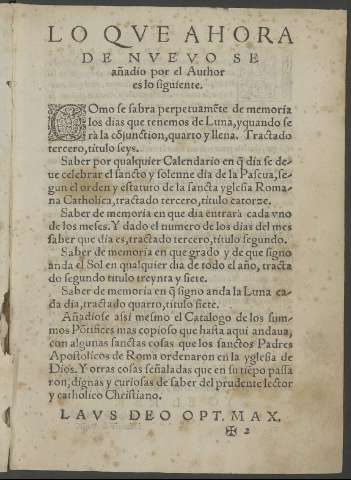 LO QVE AHORA
DE NVEVO SE
añadio por el Author
es lo siguiente.
COmo se sabra perpetuamẽte de memoria
los dias que tenemos de Luna, yquando se
rà la cõjunction, quarto y llena. Tractado
tercero, titulo seys.
Saber por qualquier Calendario en q̃ dia se de-
ue celebrar el sancto y solenne dia de la Pascua, se-
gun el orden y estatuto de la sancta yglesia Roma-
na Catholica, tractado tercero, titulo catorze.
Saber de memoria en que dia entrarà cada vno
de los meses. Y dado el numero de los dias del mes
saber que dia es, tractado tercero, titulo segundo.
Saber de memoria en que grado y de que signo
anda el Sol en qualquier dia de todo el año, tracta
do segundo titulo treynta y siete.
Saber de memoria en q̃ signo anda la Luna ca-
da dia, tractado quarto, titulo siete.
Añadiose assi mesmo el Catalogo de los sum-
mos Põtifices mas copioso que hasta aqui andaua,
con algunas sanctas cosas que los sanctos Padres
Apostolicos de Roma ordenaron en la yglesia de
Dios. Y otras cosas señaladas que en su tiẽpo passa
ron, dignas y curiosas de saber del prudente lector
y catholico Christiano.
LAVS DEO OPT. MAX.
✠ 2